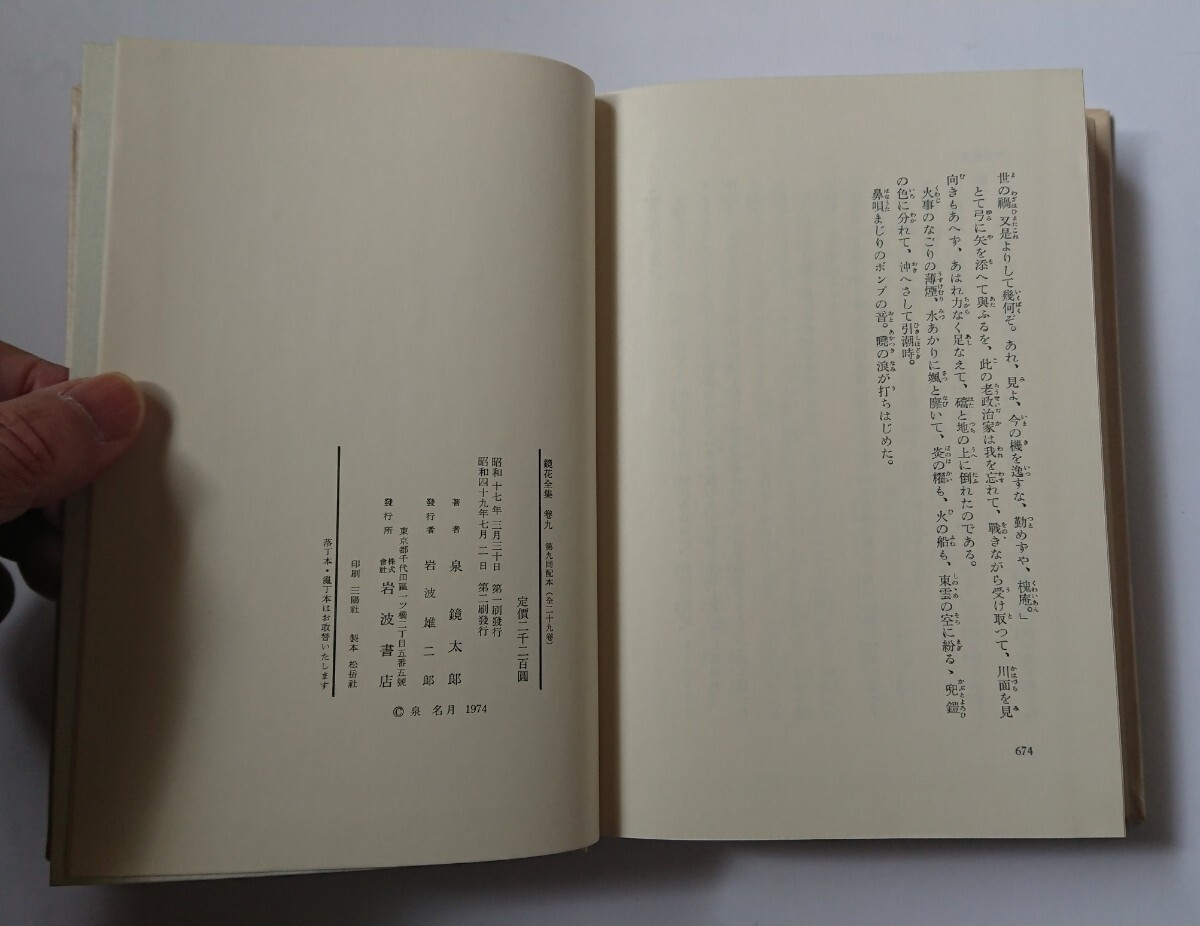 世の禍又是よりして幾何ぞ。あれ、見よ、今の機を逸すな、勤めずや、槐庵。」
とて弓に矢を添へて與ふるを、此の老政治家は我を忘れて、戰きながら受け取つて、川面を見
向きもあへず、あはれ力なく足なえて、礑と地の上に倒れたのである。
火事のなごりの薄煙、水あかりに颯と靡いて、炎の櫂も、火の船も、東雲の空に紛るゝ兜鎧
の色に分れて、沖へさして引潮時。
鼻唄まじりのポンプの音。曉の浪が打ちはじめた。
674
鏡花全集 卷九 第九回配本(全二十九卷)
定價二千二百圓
昭和十七年三月三十日 第一刷發行
昭和四十九年七月二日 第二刷發行
著者 泉鏡太郎
發行者 岩波雄二郎
東京都千代田區一ツ橋二丁目五番五號
發行所 株式會社 岩波書店
印刷 三陽社 製本 松岳社
落丁本・亂丁本はお取替いたします
© 泉 名月 1974